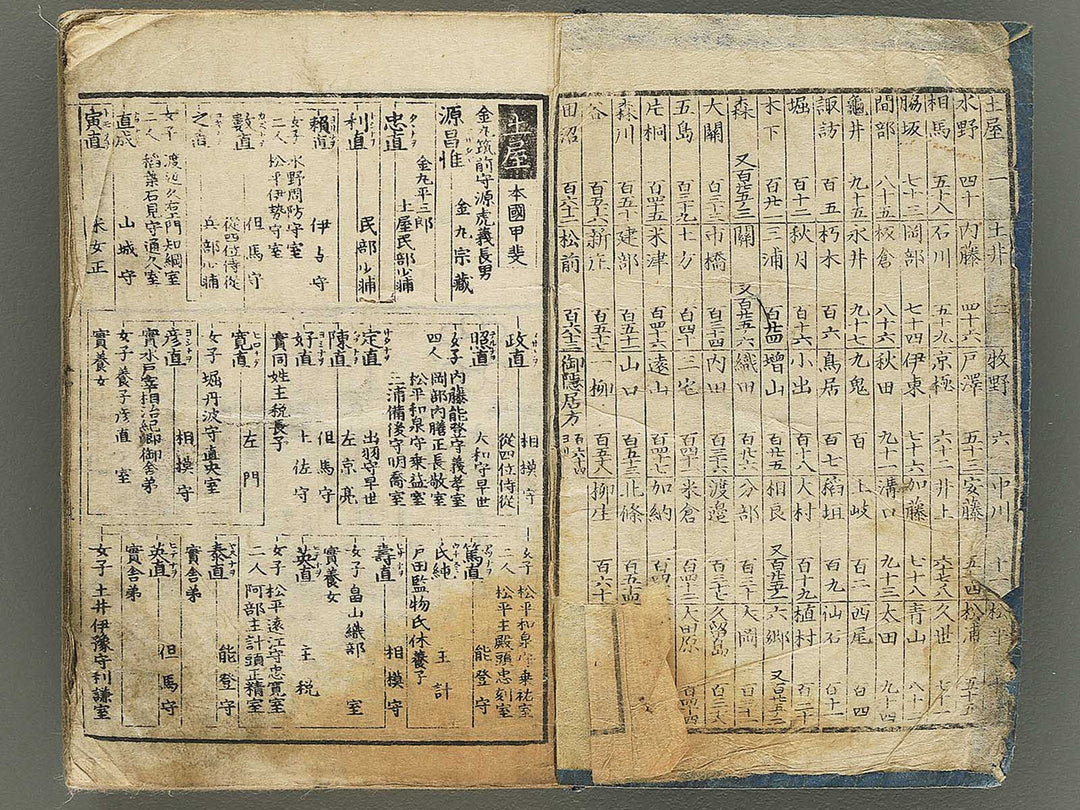 土屋 一 土井 三 牧野 六 中川 十一 松平
水野 四十 内藤 四十六 戸澤 五十三 安藤 五十四 松浦 五十五
相馬 五十八 石川 五十九 京極 六十二 井上 六七八 久世 七十一
脇坂 七十三 岡部 七十四 伊東 七十六 加藤 七十八 青山 八十
間部 八十三 板倉 八十六 秋田 九十一 溝口 九十三 太田 九十四
龜井 九十五 永井 九十七 九鬼 百 土岐 百二 西尾 百四
諏訪 百五 朽木 百六 鳥居 百七 稲垣 百九 仙石 百十一
堀 百十二 秋月 百十六 小出 百十八 大村 百十九 植村 百二十
木下 百廿一 三浦 百廿四 増山 百廿五 相良 六郷
森 關 織田 百廿六 分部 百三十 大岡
大關 百三十三 市橋 百三十四 内田 百三十六 渡邉 百三十七 久留島 百三十八
五島 百三十九 土方 百四十 三宅 百四十一 米倉 百四十三 大田原 百四十四
片桐 百四五 米津 百四十六 遠山 百四十七 加納
森川 百五十 建部 百五十一 山口 百五十三 北條 百五十四
谷 百五十六 新庄 百五十七 一柳 百五十八 柳生 百六十
田沼 百六十二 松前 百六十三 御隠居方
土屋 本國甲斐
金丸筑前守源虎義長男
源昌惟 金丸宗藏
金丸平三郎
忠直 土屋民部少輔
利直 民部少輔
頼直 伊与守
女子二人 水野周防守室
松平伊勢守室
數直 但馬守
從四位侍從
之直 兵部少輔
女子二人 渡辺久左エ門知綱室
稲葉石見守通久室
直成 山城守
寅直 采女正
政直 相模守
從四位侍從
照直 大和守早世
女子四人 内藤能登守義孝室
岡部内膳正長敬室
松平和泉守乗益室
三浦備後守明喬室
定直 出羽守早世
陳直 左京亮
好直 但馬守
土佐守
實同姓主税長子
寛直 左門
女子 堀丹波守直央室
彦直 相模守
實水戸宰相治紀卿御舎弟
女子 養子彦直室
實養女
女子二人 松平和泉守乗祐室
松平主殿頭忠刻室
篤直 能登守
氏純 主計
戸田監物氏休養子
壽直 相摸守
女子 畠山織部室
實養女
英直 主税
女子二人 松平遠江守忠寛室
阿部主計頭正精室
泰直 能登守
實舎弟
英直 但馬守
實舎弟
女子 土井伊豫守利謙室